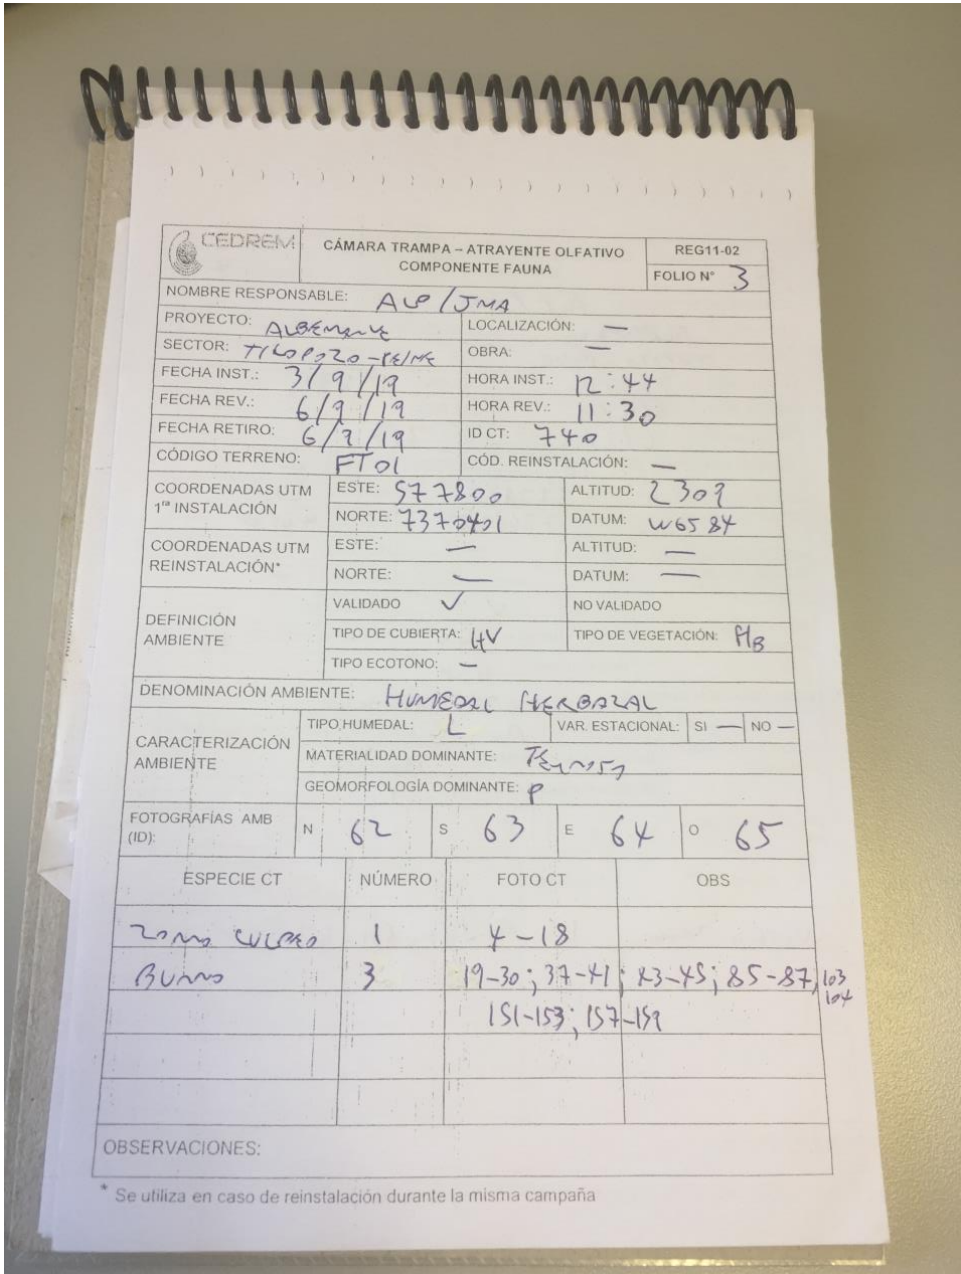 CEDREM
CÁMARA TRAMPA – ATRAYENTE OLFATIVO
COMPONENTE FAUNA
REG11-02
FOLIO N° 3
NOMBRE RESPONSABLE: ALP/JMA
PROYECTO: ALBEMARLE
LOCALIZACIÓN: —
SECTOR: TILOPOZO-
OBRA: —
FECHA INST.: 3/9/19
HORA INST.: 12:44
FECHA REV.: 6/9/19
HORA REV.: 11:30
FECHA RETIRO: 6/9/19
ID CT: 740
CÓDIGO TERRENO: FT01
CÓD. REINSTALACIÓN: —
COORDENADAS UTM
1ra INSTALACIÓN
ESTE: 577800
ALTITUD: 2309
NORTE: 7370401
DATUM: WGS 84
COORDENADAS UTM
REINSTALACIÓN*
ESTE: —
ALTITUD: —
NORTE: —
DATUM: —
DEFINICIÓN
AMBIENTE
VALIDADO ✓
NO VALIDADO
TIPO DE CUBIERTA: HV
TIPO DE VEGETACIÓN: HB
TIPO ECOTONO: —
DENOMINACIÓN AMBIENTE: HUMEDAL HERBAZAL
CARACTERIZACIÓN
AMBIENTE
TIPO HUMEDAL: L
VAR. ESTACIONAL: SI — NO —
MATERIALIDAD DOMINANTE:
GEOMORFOLOGÍA DOMINANTE: P
FOTOGRAFÍAS AMB
(ID):
N 62 S 63 E 64 O 65
ESPECIE CT NÚMERO FOTO CT OBS
ZORRO CULPEO 1 4-18
BURRO 3 19-30; 37-41; 43-45; 85-87, 103
104
151-153; 157-159
OBSERVACIONES:
* Se utiliza en caso de reinstalación durante la misma campaña